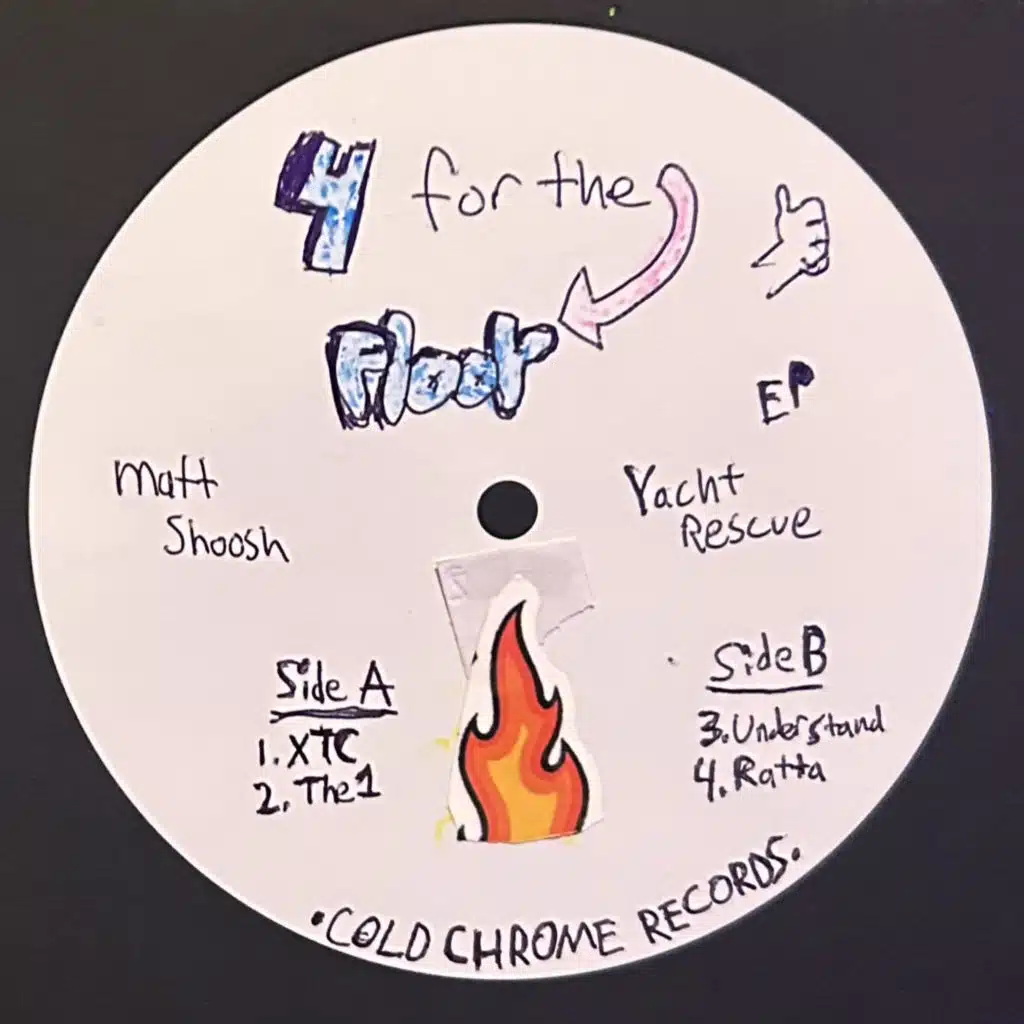 4 for the
Floor
EP
Matt
Shoosh
Yacht
Rescue
Side A
1. XTC
2. The 1
Side B
3. Understand
4. Ratta
•COLD CHROME RECORDS•